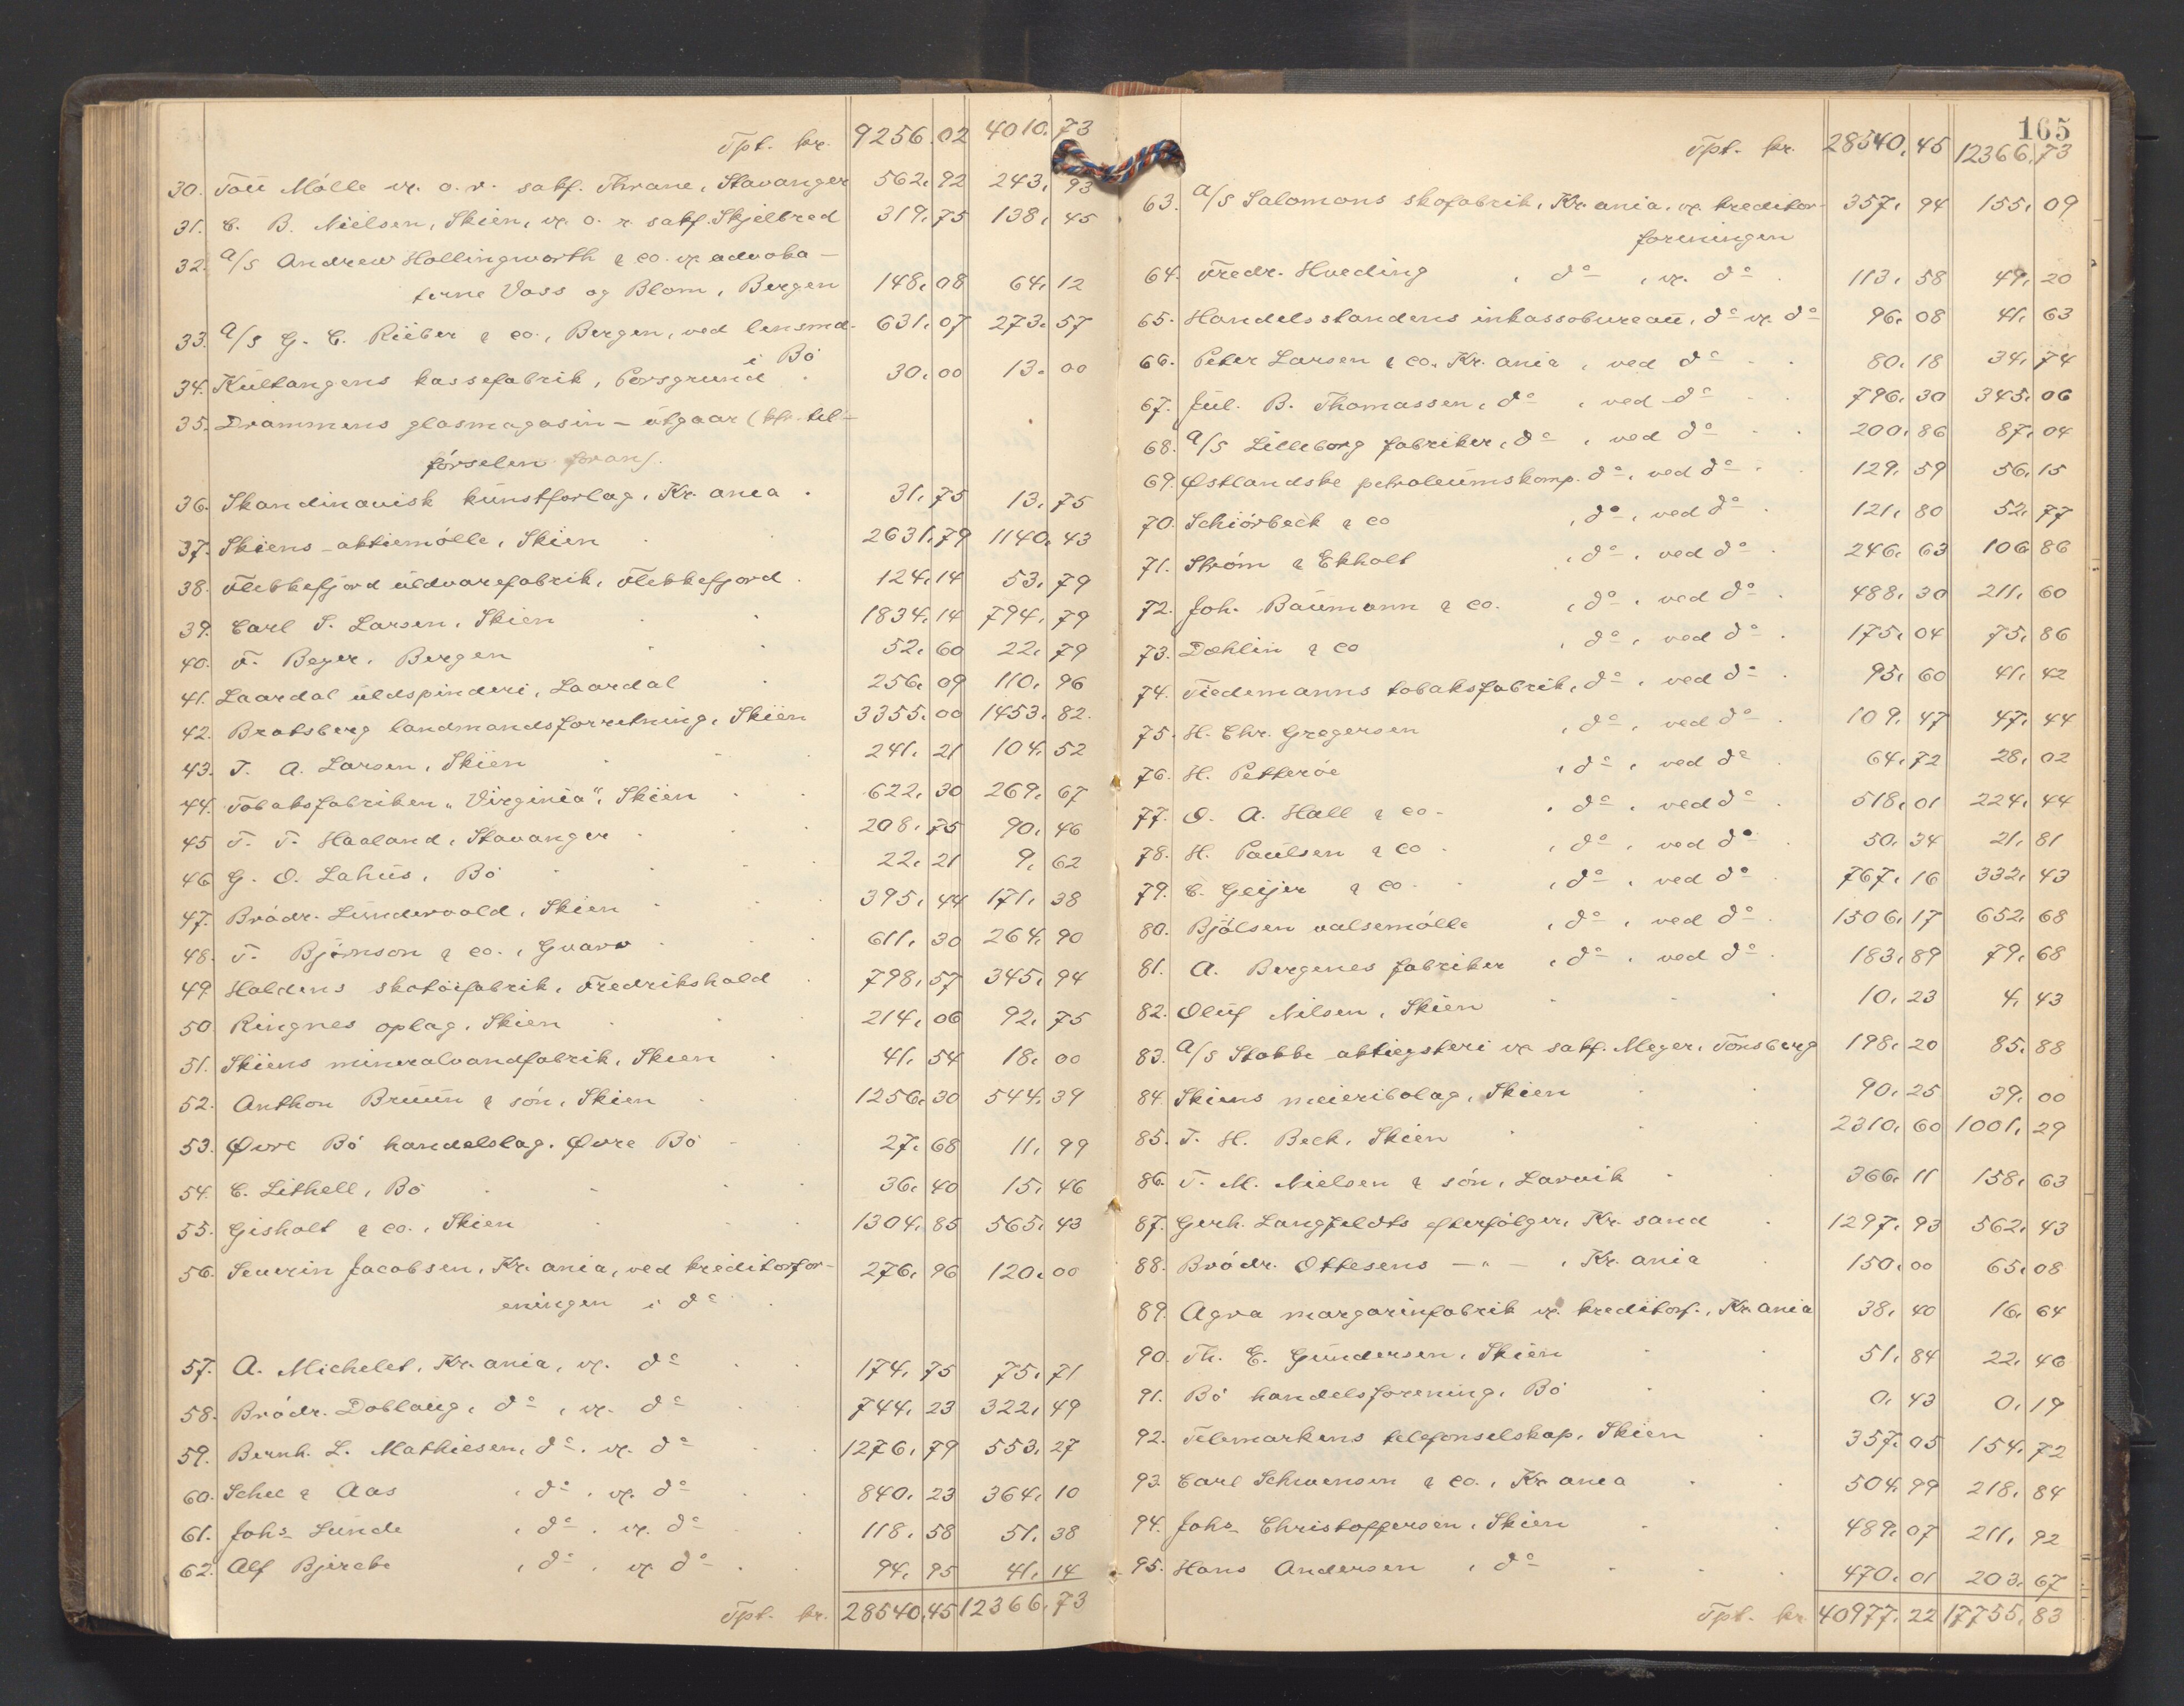 Tpt. kr. 9256.02 4010.73
30. Tou Mölle vp. o.r. sakf. Thrane, Stavanger 562.92 243.93
31. C. B. Nielsen, Skien, vp. o. r. sakf. Skjelbred 319.75 138.45
32. A/S Andrew Hollingworth & co. vp advoka-
terne Voss og Blom, Bergen 148.08 64.12
33. A/S G. C. Rieber & co., Bergen, ved lensmd. 631.07 273.57
i Bö
34. Kultangens kassefabrik, Porsgrund 30.00 13.00
35. Drammens glasmagasin - utgaar (kfr. til-
förselen foran).
36. Skandinavisk kunstforlag, Kr.ania 31.75 13.75
37. Skiens aktiemölle, Skien 2631.79 1140.43
38. Flekkefjord uldvarefabrik, Flekkefjord 124.14 53.79
39. Carl S. Larsen, Skien 1834.14 794.79
40. F. Beyer, Bergen 52.60 22.79
41. Laardal uldspinderi, Laardal 256.09 110.96
42. Bratsberg landmandsforretning, Skien 3355.00 1453.82
43. T. A. Larsen, Skien 241.21 104.52
44. Tobaksfabriken „Virginia“, Skien 622.30 269.67
45. T. T. Haaland, Stavanger 208.75 90.46
46. G. O. Lahus, Bö 22.21 9.62
47. Brödr. Lundervold, Skien 395.44 171.38
48. T. Björnson & co., Gvarv 611.30 264.90
49. Haldens skotöifabrik, Fredrikshald 798.57 345.94
50. Ringnes oplag, Skien 214.06 92.75
51. Skiens mineralvandfabrik, Skien 41.54 18.00
52. Anthon Bruun & sön, Skien 1256.30 544.39
53. Øvre Bö handelslag, Øvre Bö 27.68 11.99
54. C. Lithell, Bö 36.40 15.46
55. Gisholt & co., Skien 1304.85 565.43
56. Severin Jacobsen, Kr.ania, ved kreditorfor- 276.96 120.00
eningen i do
57. A. Michelet, Kr.ania, vp. do 174.75 75.71
58. Brödr. Dobloug, do, vp. do 744.23 322.49
59. Bernh. L. Mathiesen, do, vp. do 1276.79 553.27
60. Schee & Aas, do, vp. do 840.23 364.10
61. Johs Lunde, do, vp. do 118.58 51.38
62. Alf Bjercke, do, vp do 94.95 41.14
Tpt. kr. 28540.45 12366.73
165
Tpt. kr. 28540.45 12366.73
63. A/S Salomons skofabrik, Kr.ania, vp. kreditor- 357.94 155.09
foreningen
64. Fredr. Hveding, do, vp. do 113.58 49.20
65. Handelsstandens inkassobureau, do vp. do 96.08 41.63
66. Peter Larsen & co. Kr.ania, ved do 80.18 34.74
67. Jul. B. Thomassen, do, ved do 796.30 345.06
68. A/S Lilleborg fabriker, do, ved do 200.86 87.04
69. Østlandske petroleumskomp. do, ved do 129.59 56.15
70. Schiörbeck & co, do, ved do 121.80 52.77
71. Ström & Ekholt, do, ved do 246.63 106.86
72. Joh. Baumann & co., do, ved do 488.30 211.60
73. Dæhlin & co, do, ved do 175.04 75.86
74. Tiedemanns tobaksfabrik, do, ved do 95.60 41.42
75. H. Chr. Gregersen, do, ved do 109.47 47.44
76. H. Petteröe, do, ved do 64.72 28.02
77. O. A. Hall & co., do, ved do 518.01 224.44
78. H. Paulsen & co, do, ved do 50.34 21.81
79. C. Geijer & co., do, ved do 767.16 332.43
80. Bjölsen valsemölle, do, ved do 1506.17 652.68
81. A. Bergenes fabriker, do, ved do 183.89 79.68
82. Oluf Nilsen, Skien 10.23 4.43
83. A/S Stokke aktieysteri vp sakf. Meyer, Tönsberg 198.20 85.88
84. Skiens meieribolag, Skien 90.25 39.00
85. T. H. Beck, Skien 2310.60 1001.29
86. T. M. Nielsen & sön, Larvik 366.11 158.63
87. Gerh. Langfeldts efterfölger, Kr.sand 1297.93 562.43
88. Brödr. Ottesens —„—, Kr.ania 150.00 65.08
89. Agra margarinfabrik vp. kreditorf., Kr.ania 38.40 16.64
90. Th. E. Gundersen, Skien 51.84 22.46
91. Bö handelsforening, Bö 0.43 0.19
92. Telemarkens telefonselskap, Skien 357.05 154.72
93. Carl Schwensen & co., Kr.ania 504.99 218.84
94. Johs Christoffersen, Skien 489.07 211.92
95. Hans Andersen, do 470.01 203.67
Tpt. kr. 40977.22 17755.83